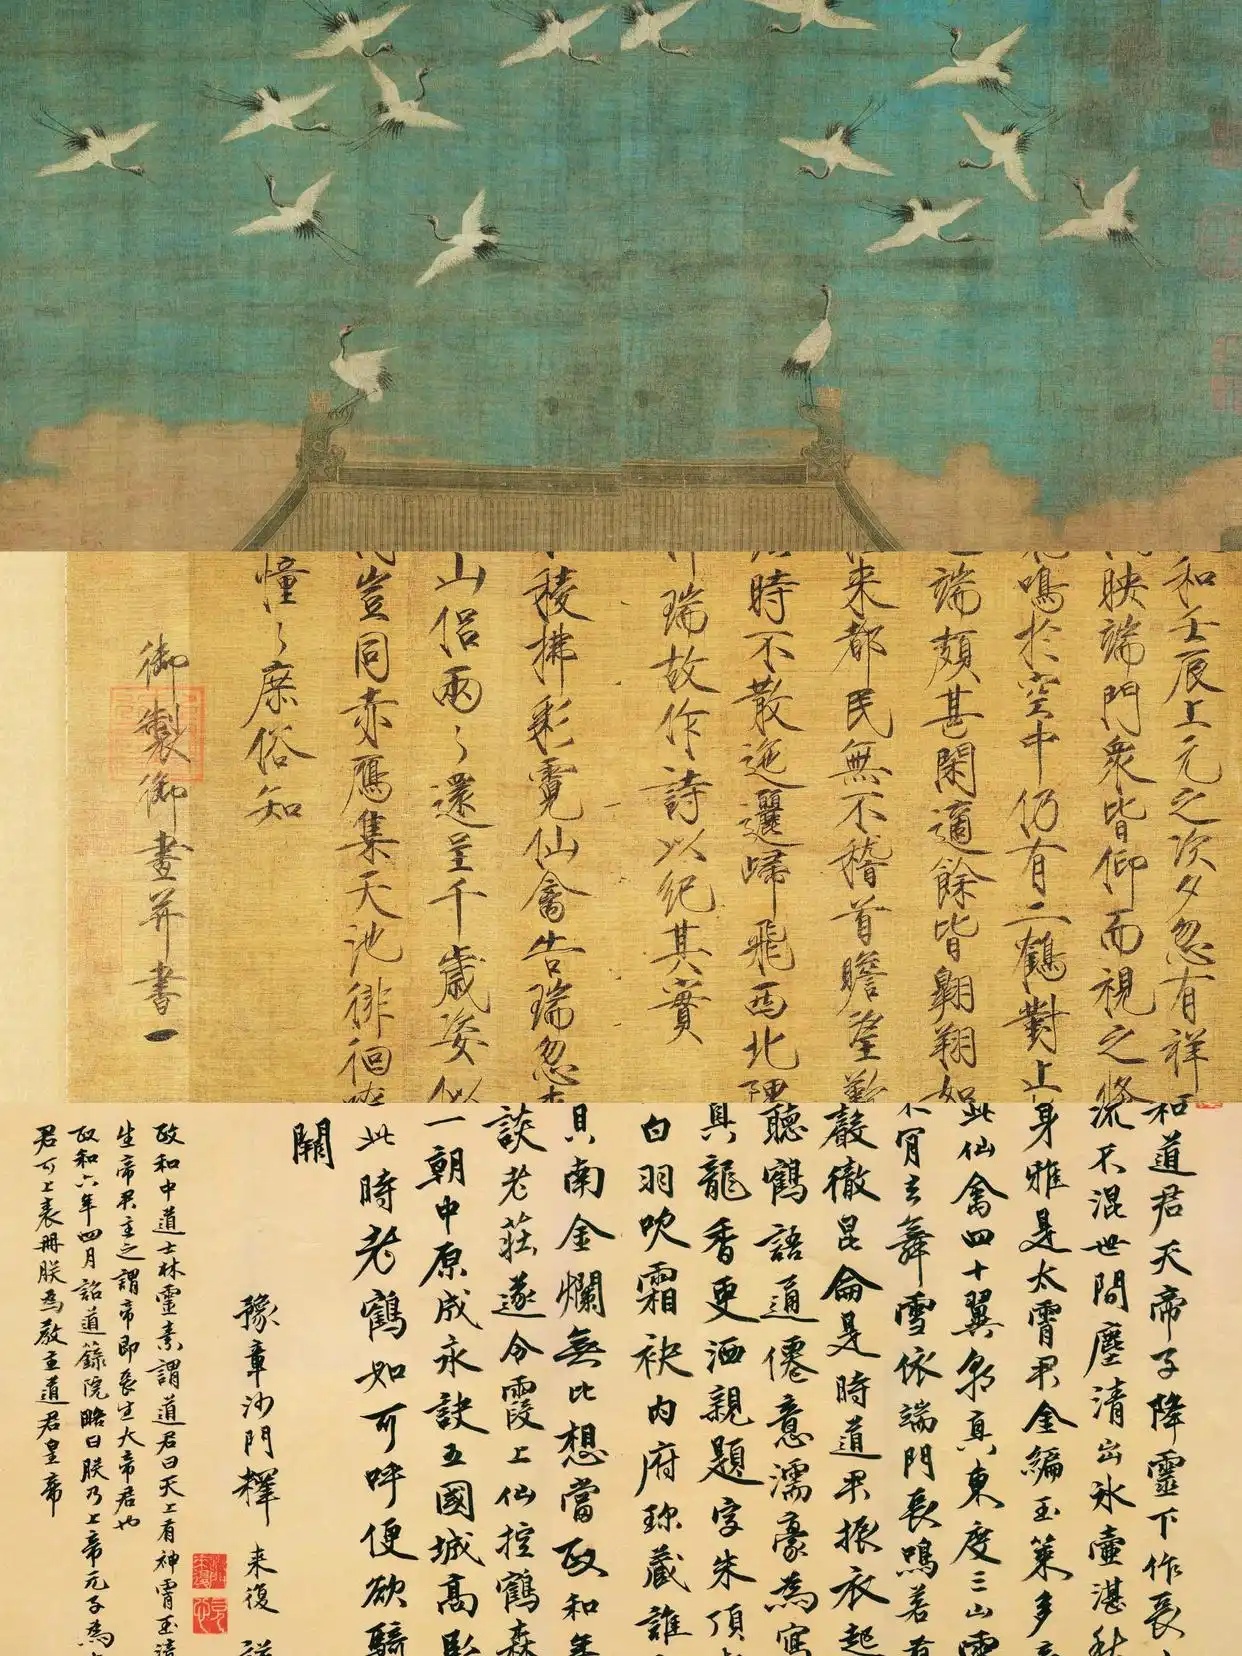 和壬辰上元之次夕忽有祥
映端門衆皆仰而視之
鳴於空中仍有二鶴對止
端頗甚閑適餘皆翱翔如
来都民無不稽首瞻望歎
時不散迤邐歸飛西北隅
瑞故作詩以紀其實
稜拂彩霓仙禽告瑞忽
山侣兩々還呈千歲姿似
豈同赤鴈集天池徘徊
憧々庶俗知
御製御畫并書
和道君天帝子降靈下作長
流不混世間塵清出冰壺湛秋
身雅是太霄君金編玉策多
此仙禽四十翼朝真東度三山雲
舞雪依端門長鳴若有
聲徹昆侖是時道君振衣起
聽鶴語通僊意濡豪為寫
具龍香更洒親題字朱頂
白羽吹霜袂内府珎藏誰
貝南金爛無比想當政和年
談老莊遂令霞上仙控鶴森
一朝中原成永訣五國城高臥
此時老鶴如可呼便欲騎
闕
豫章沙門釋来復
政和中道士林靈素謂道君曰天上有神霄玉清
生帝君主之謂帝即長生大帝君也
政和六年四月詔道籙院略曰朕乃上帝元子為
君可上表冊朕為教主道君皇帝